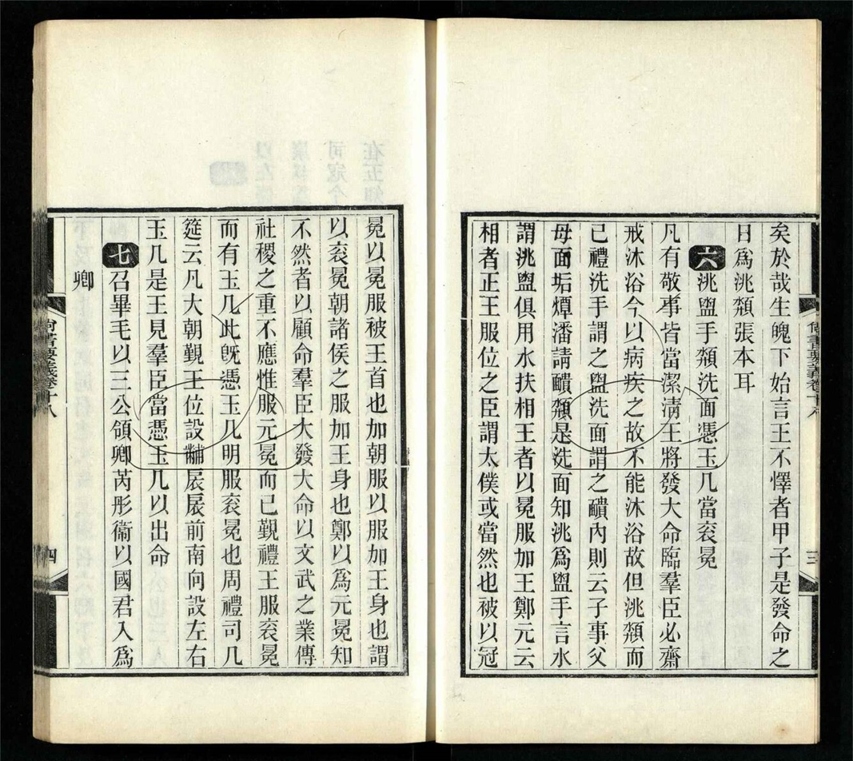 矣於哉生魄下始言王不懌者甲子是發命之
日爲洮頮張本耳
六洮盥手頮洗面憑玉几當衮冕
凡有敬事皆當潔淸王將發大命臨羣臣必齋
戒沐浴今以病疾之故不能沐浴故但洮頮而
已禮洗手謂之盥洗面謂之靧內則云子事父
母面垢燂潘請靧頮是洗面知洮爲盥手言水
謂洮盥俱用水扶相王者以冕服加王鄭元云
相者正王服位之臣謂太僕或當然也被以冠
冕以冕服被王首也加朝服以服加王身也謂
以衮冕朝諸侯之服加王身也鄭以爲元冕知
不然者以顧命羣臣大發大命以文武之業傳
社稷之重不應惟服元冕而已覲禮王服衮冕
而有玉几此旣憑玉几明服衮冕也周禮司几
筵云凡大朝覲王位設黼扆扆前南向設左右
玉几是王見羣臣當憑玉几以出命
七召畢毛以三公領卿芮彤衞以國君入爲
卿
尙書要義卷十八
三
尙書要義卷十八
四